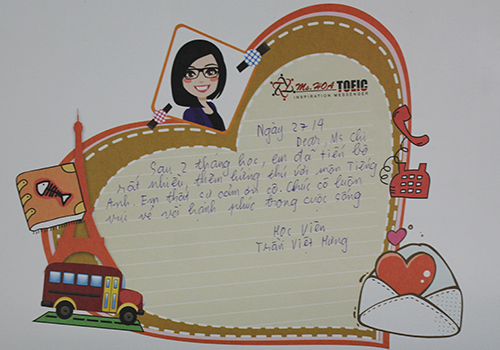 Ms. HOA TOEIC
INSPIRATION MESSENGER
Ngày 27/9
Dear, Ms Chi
Sau 2 tháng học, em đã tiến bộ
rất nhiều, thêm hứng thú với môn Tiếng
Anh. Em thật sự cảm ơn cô. Chúc cô luôn
vui vẻ và hạnh phúc trong cuộc sống
Học Viên
Trần Việt Hưng